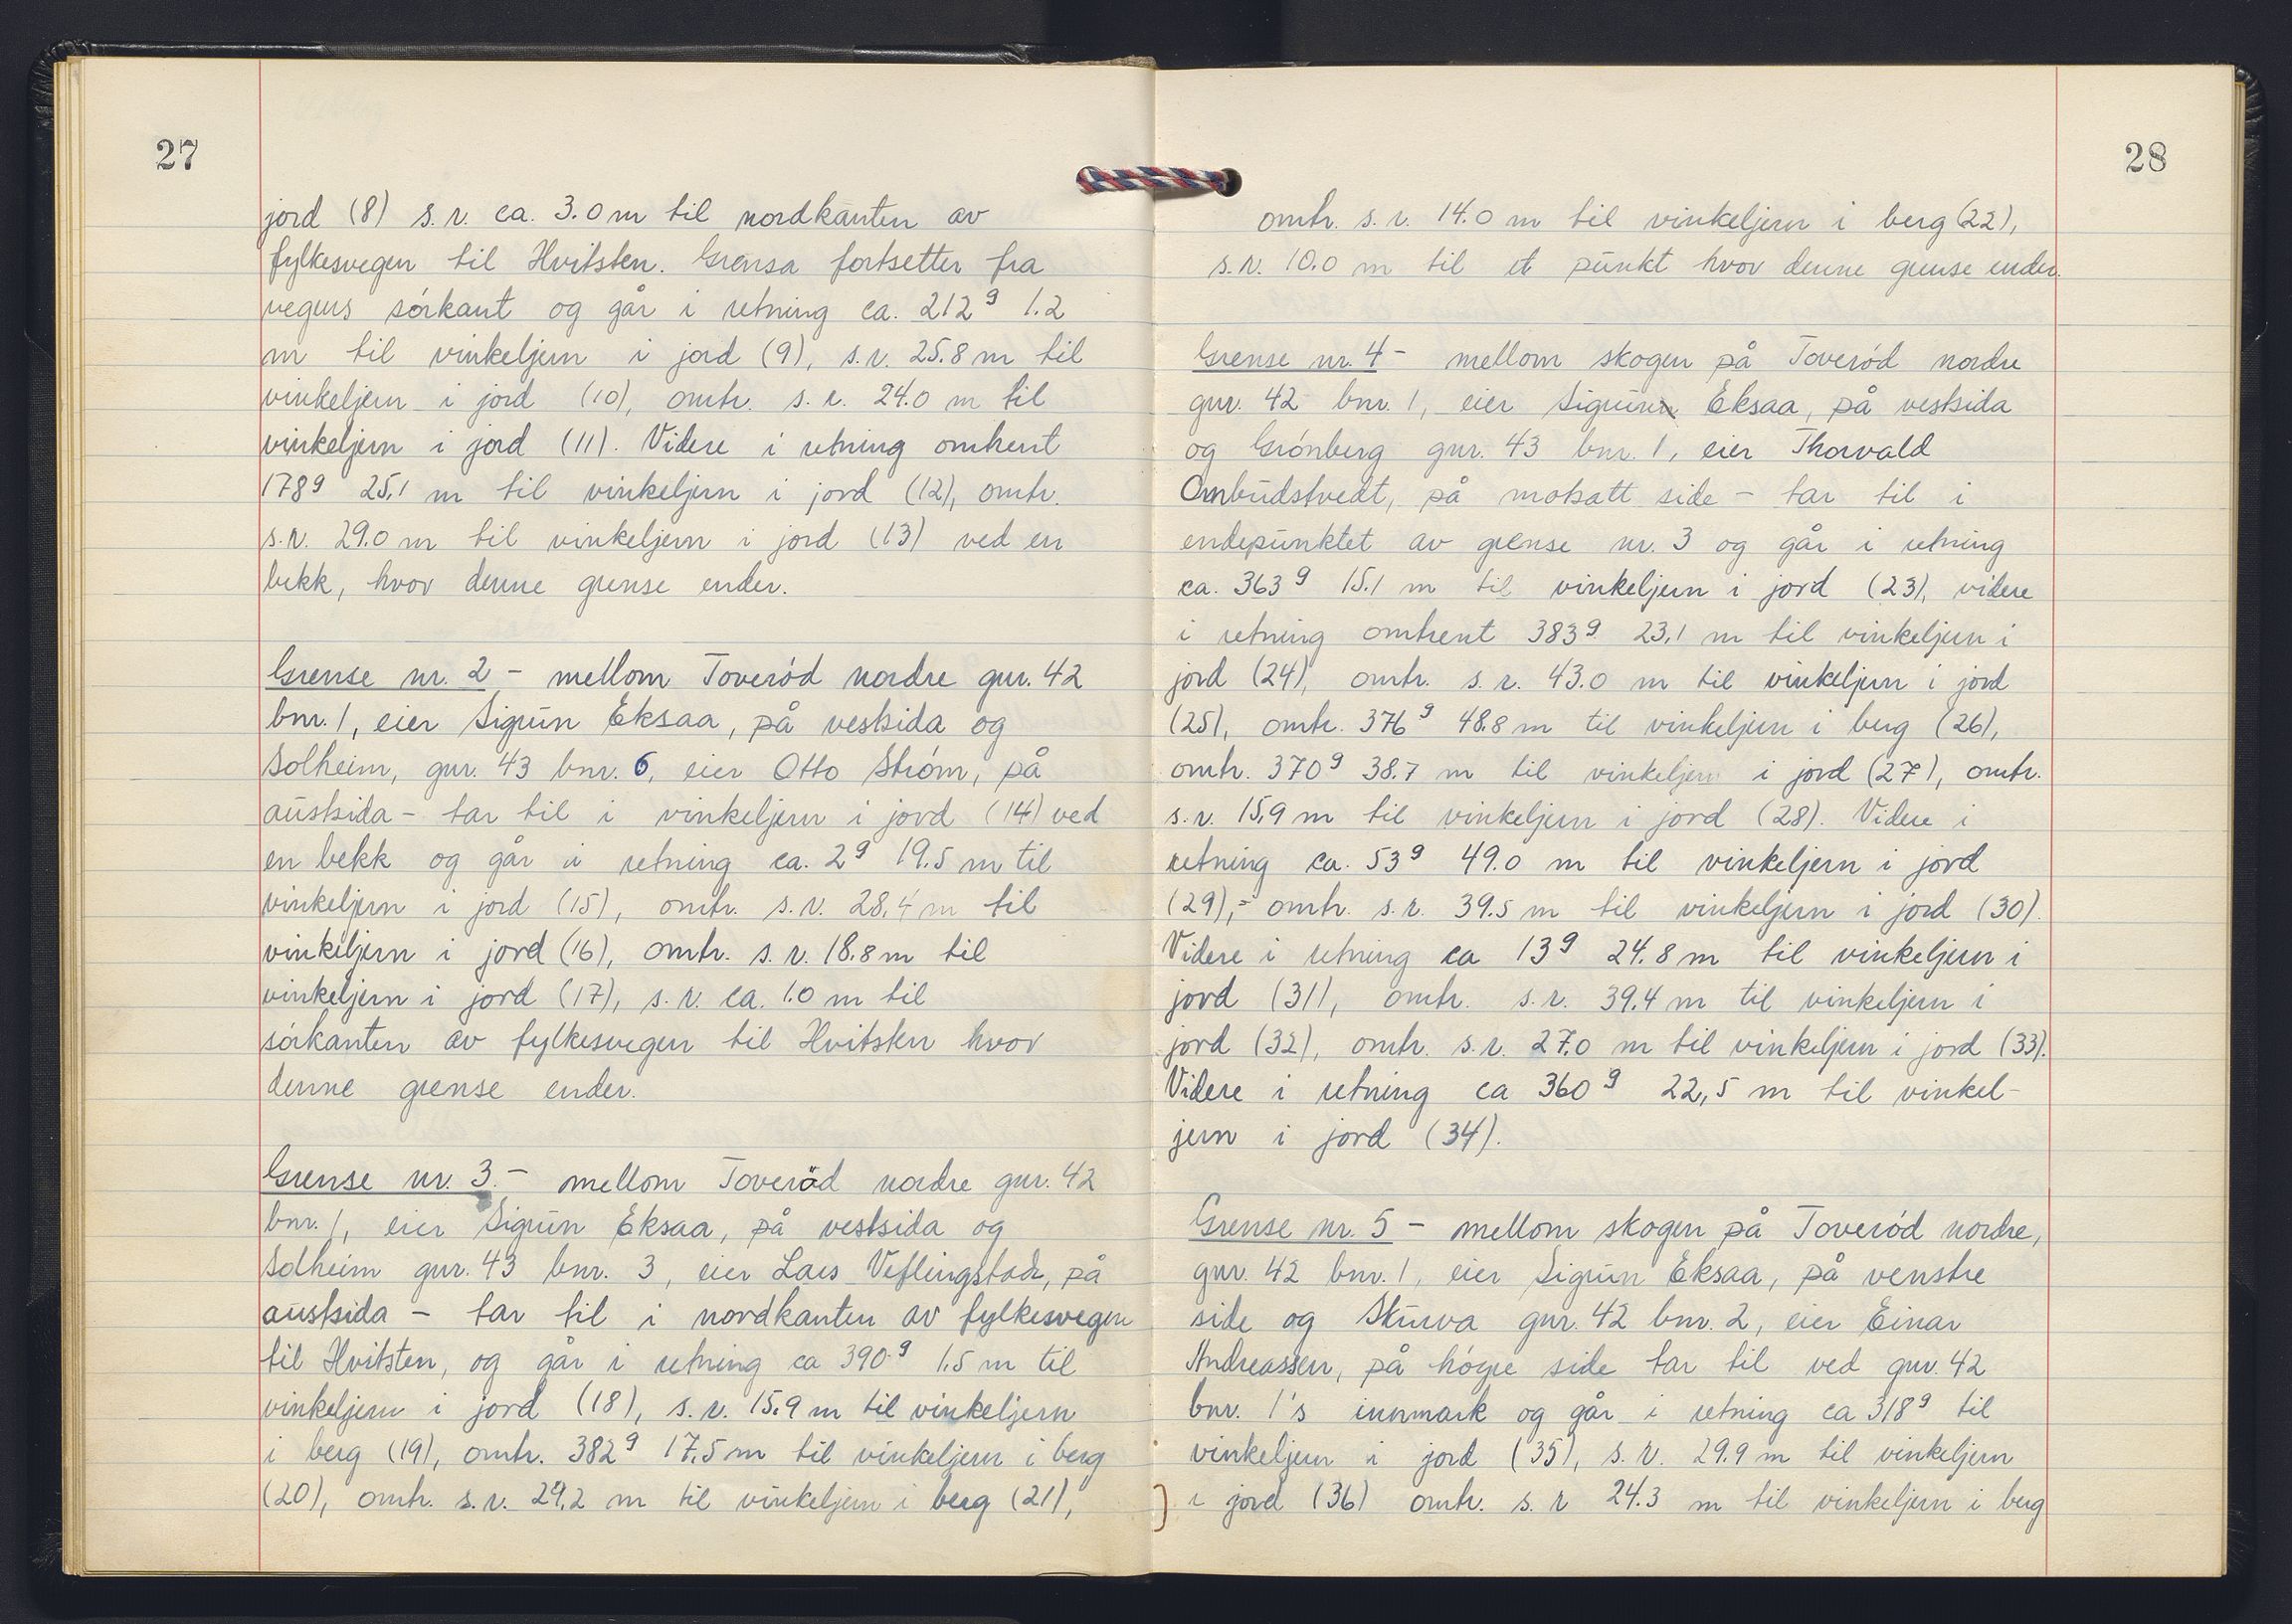 27
jord (8) s.r. ca. 3.0 m til nordkanten av
fylkesvegen til Hvitsten. Grensa fortsetter fra
vegens sørkant og går i retning ca. 212ᵍ 1.2
m til vinkeljern i jord (9), s.r. 25.8 m til
vinkeljern i jord (10), omtr. s.r. 24.0 m til
vinkeljern i jord (11). Videre i retning omtrent
178ᵍ 25,1 m til vinkeljern i jord (12), omtr.
s.r. 29.0 m til vinkeljern i jord (13) ved en
bekk, hvor denne grense ender.
Grense nr. 2 - mellom Toverød nordre gnr. 42
bnr. 1, eier Sigrun Eksaa, på vestsida og
Solheim, gnr. 43 bnr. 6, eier Otto Strøm, på
austsida - tar til i vinkeljern i jord (14) ved
en bekk og går i retning ca. 2ᵍ 19.5 m til
vinkeljern i jord (15), omtr. s.r. 28,4 m til
vinkeljern i jord (16), omtr. s.r. 18.8 m til
vinkeljern i jord (17), s.r. ca. 1.0 m til
sørkanten av fylkesvegen til Hvitsten hvor
denne grense ender.
Grense nr. 3.- mellom Toveröd nordre gnr. 42
bnr. 1, eier Sigrun Eksaa, på vestsida og
Solheim gnr. 43 bnr. 3, eier Lars Veflingstad, på
austsida - tar til i nordkanten av fylkesvegen
til Hvitsten, og går i retning ca 390ᵍ 1.5 m til
vinkeljern i jord (18), s.r. 15.9 m til vinkeljern
i berg (19), omtr. 382ᵍ 17.5 m til vinkeljern i berg
(20), omtr. s.r. 29,2 m til vinkeljern i berg (21),
28
omtr. s.r. 14.0 m til vinkeljern i berg (22),
s.r. 10.0 m til et punkt hvor denne grense ender.
Grense nr. 4 - mellom skogen på Toverød nordre
gnr. 42 bnr. 1, eier Sigrun Eksaa, på vestsida
og Grønberg gnr. 43 bnr. 1, eier Thorvald
Ombudstvedt, på motsatt side - tar til i
endepunktet av grense nr. 3 og går i retning
ca. 363ᵍ 15.1 m til vinkeljern i jord (23), videre
i retning omtrent 383ᵍ 23,1 m til vinkeljern i
jord (24), omtr. s.r. 43.0 m til vinkeljern i jord
(25), omtr. 376ᵍ 48.8 m til vinkeljern i berg (26),
omtr. 370ᵍ 38.7 m til vinkeljern i jord (27), omtr.
s.r. 15,9 m til vinkeljern i jord (28). Videre i
retning ca. 53ᵍ 49.0 m til vinkeljern i jord
(29), omtr. s.r. 39.5 m til vinkeljern i jord (30).
Videre i retning ca 13ᵍ 24.8 m til vinkeljern i
jord (31), omtr. s.r. 39.4 m til vinkeljern i
jord (32), omtr. s.r. 27.0 m til vinkeljern i jord (33).
Videre i retning ca 360ᵍ 22,5 m til vinkel-
jern i jord (34).
Grense nr. 5 - mellom skogen på Toverød nordre,
gnr. 42 bnr. 1, eier Sigrun Eksaa, på venstre
side og Skurva gnr. 42 bnr. 2, eier Einar
Andreassen, på høgre side tar til ved gnr. 42
bnr. 1's innmark og går i retning ca 318ᵍ til
vinkeljern i jord (35), s.r. 29.9 m til vinkeljern
i jord (36) omtr. s.r 24.3 m til vinkeljern i berg